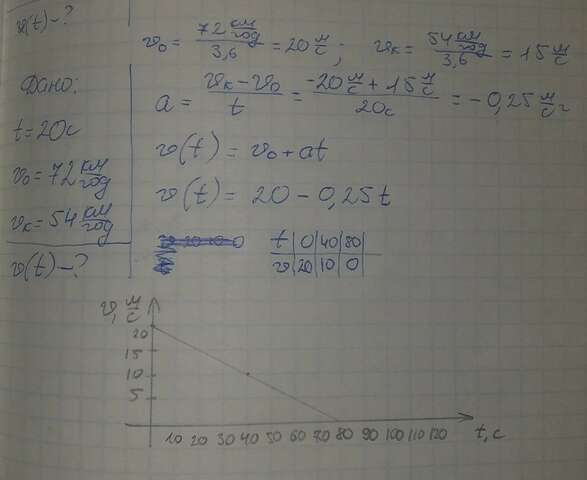 v(t) - ?
Дано:
t = 20c
v₀ = 72 км/год
vₖ = 54 км/год
v(t) - ?
v₀ = 72 км/год / 3,6 = 20 м/с ; vₖ = 54 км/год / 3,6 = 15 м/с
a = vₖ - v₀ / t = -20 м/с + 15 м/с / 20c = - 0,25 м/с²
v(t) = v₀ + at
v(t) = 20 - 0,25t
t | 0 | 40 | 80 |
v | 20 | 10 | 0 |
v, м/с
20
15
10
5
10 20 30 40 50 60 70 80 90 100 110 120 t, c